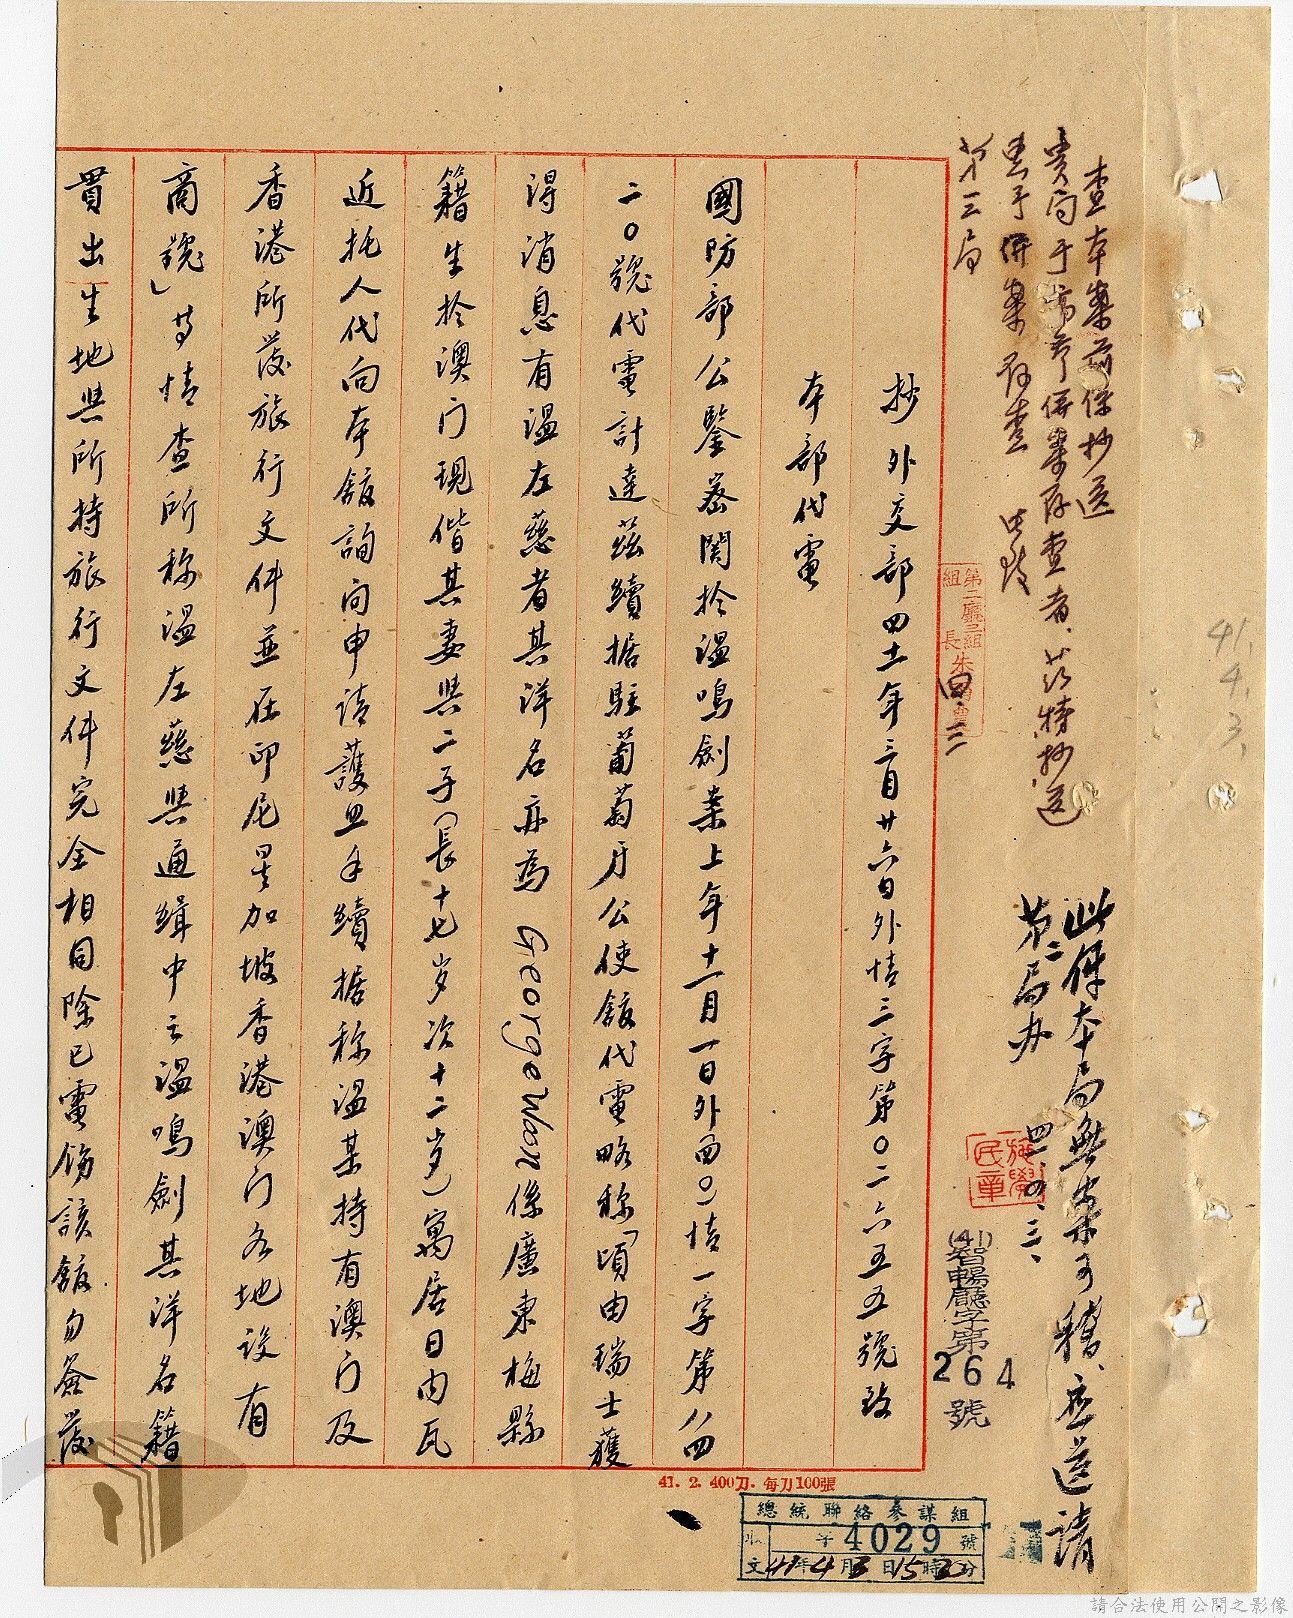 查本案前係抄送
貴局于高參併案存查者、茲特抄送
惠予併案存查 此致
第三局
此件本局無案可稽、應送請
第二局办
四一、四、三、
41.4.3.
第二廳二組
組長朱
四、三
(41)智暢廳字第
264
號
抄外交部四十一年三月廿六日外情三字第〇二六五五號致
本部代電
國防部公鑒密關於溫鳴劍案上年十一月一日外(四〇)情一字第八四
二〇號代電計達茲續据駐葡萄牙公使館代電略称「頃由瑞士獲
得消息有溫左慈者其洋名亦為 George Woon 係廣東梅縣
籍生於澳门現偕其妻與二子(長十七岁次十二岁)寓居日内瓦
近托人代向本館詢问申請護照手續据称溫某持有澳门及
香港所發旅行文件並在印尼星加坡香港澳门各地设有
商號」等情查所称溫左慈與通緝中之溫鳴劍其洋名籍
貫出生地與所持旅行文件完全相同除已電飭該館勿簽發
41. 2. 400刀. 每刀100張
總統聯絡參謀組
收文
字4029號
41年4月3日15時30分
請合法使用公開之影像